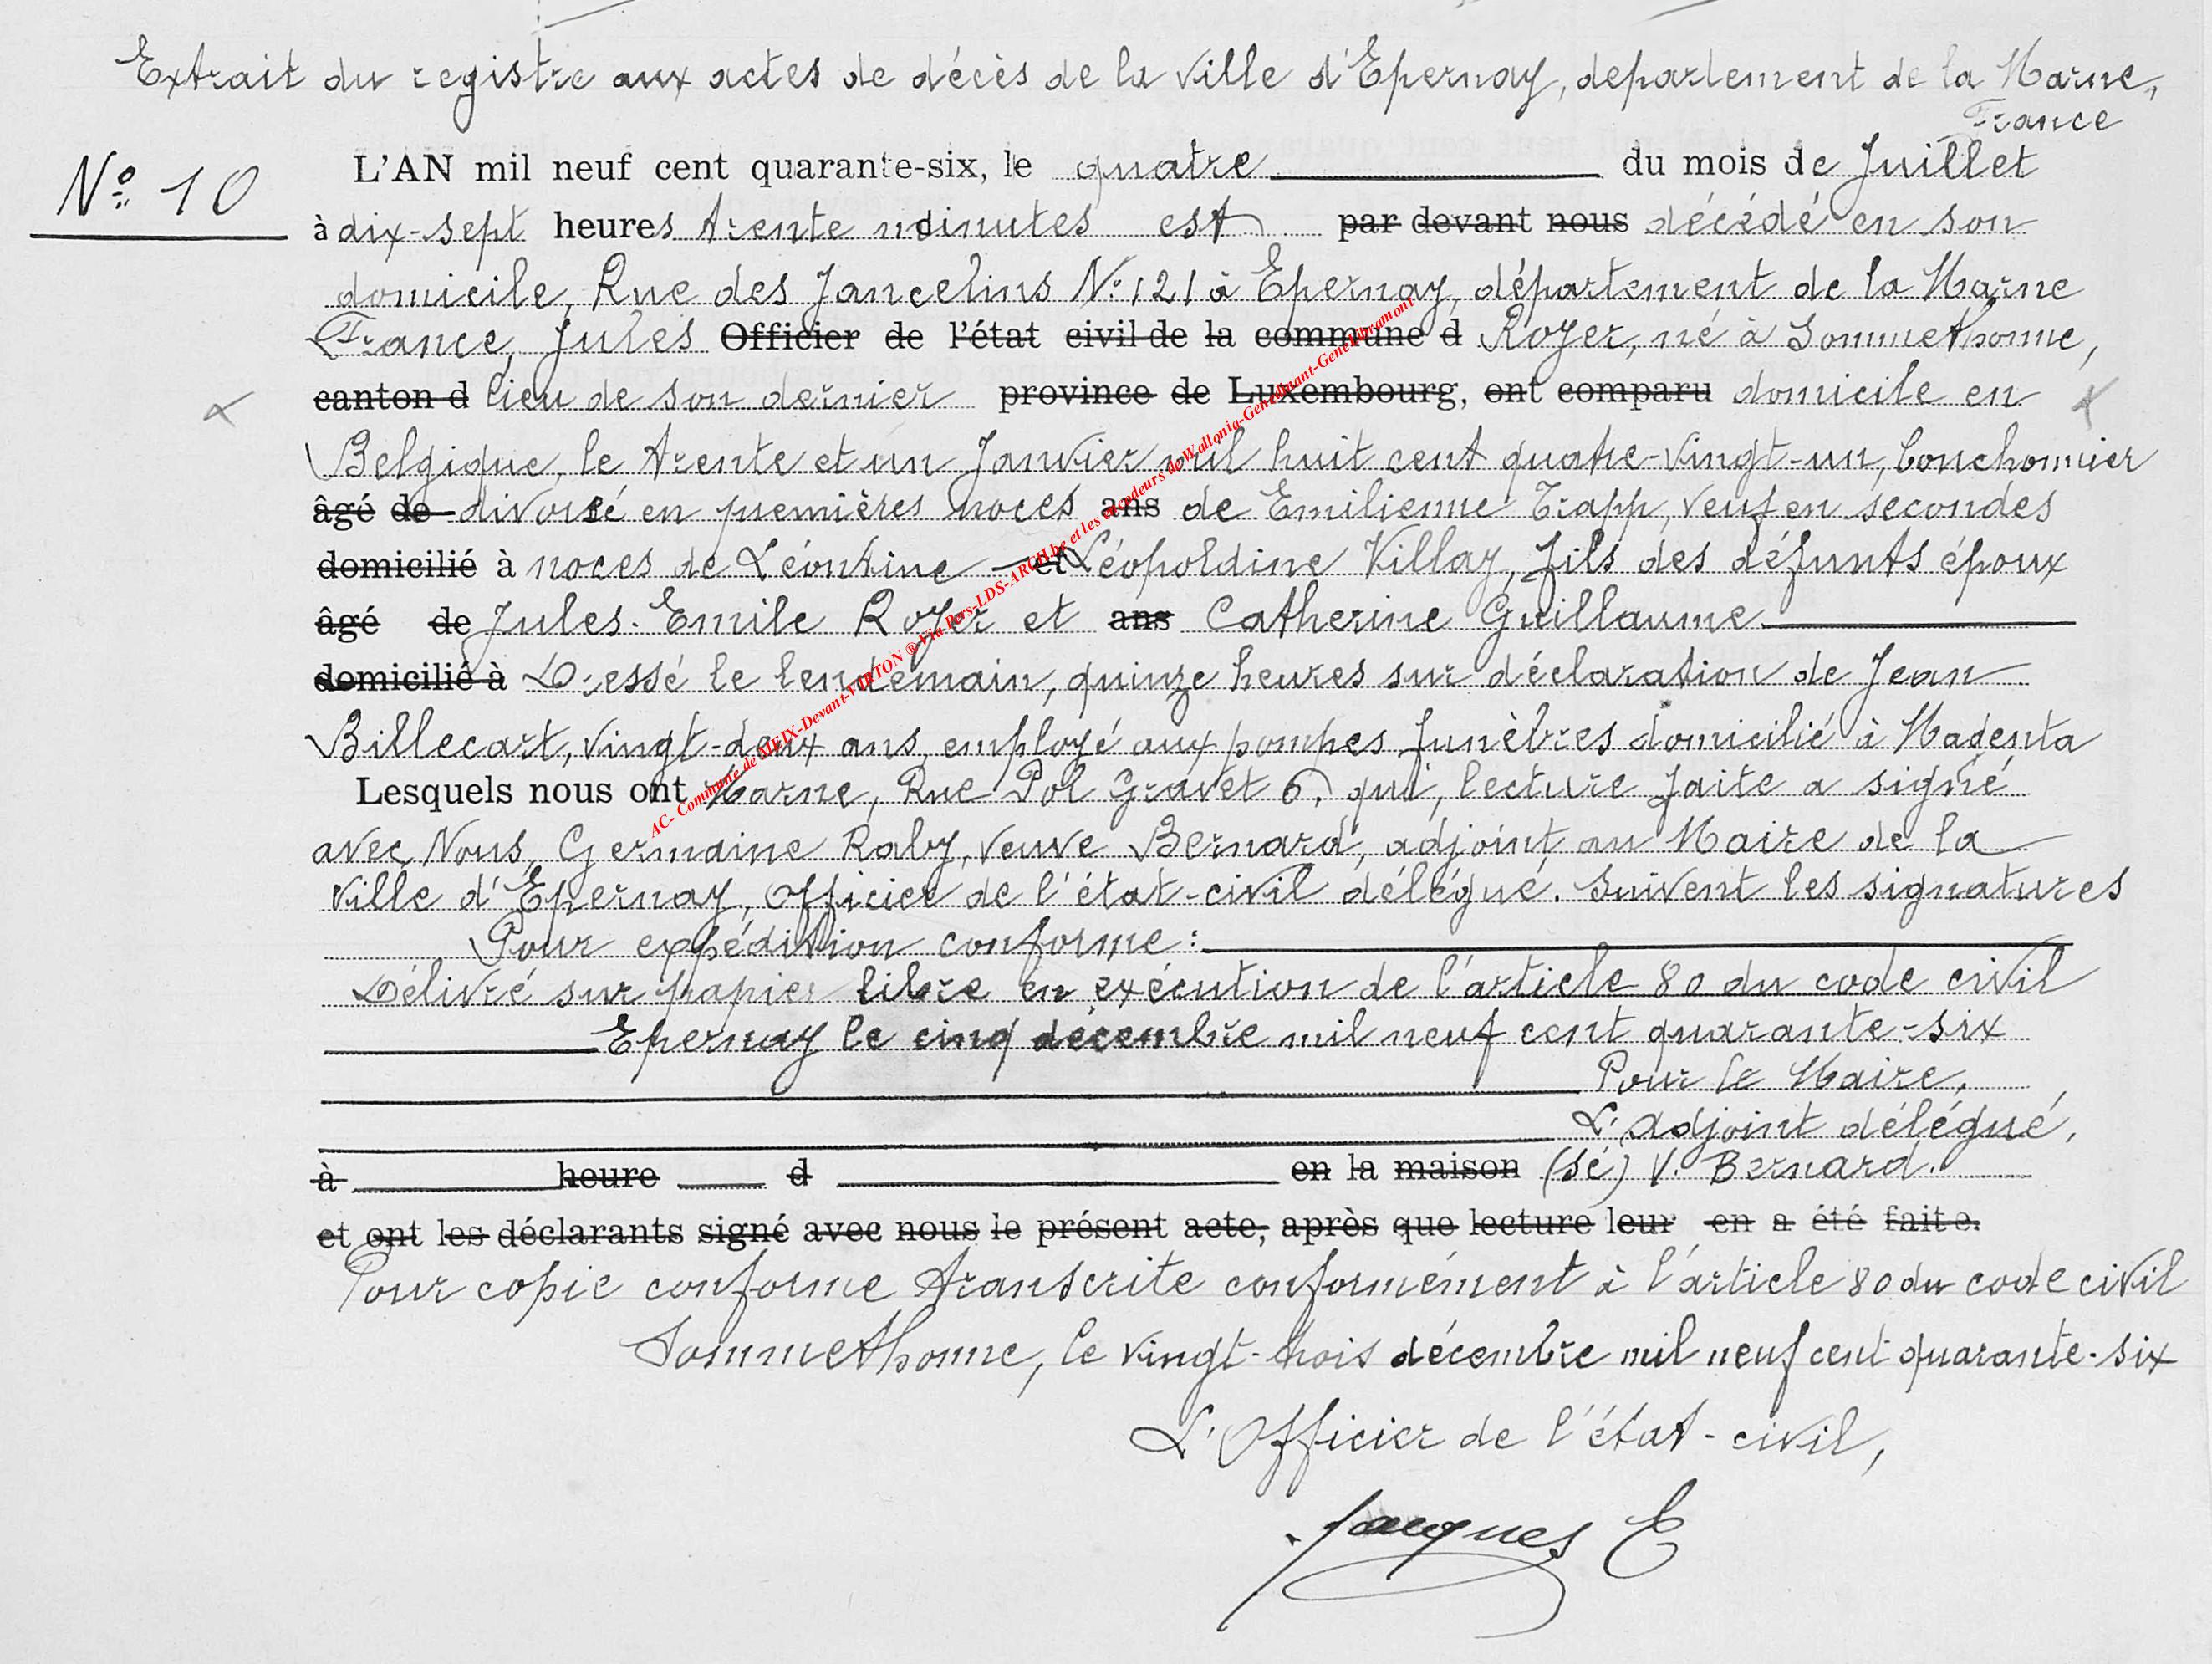 Extrait du registre aux actes de décès de la ville d'Epernay, departement de la Marne,
France
N° 10
L'AN mil neuf cent quarante-six, le quatre du mois de Juillet
à dix-sept heures trente minutes est par devant nous décédé en son
domicile, Rue des Jancelins N° 121 à Epernay, département de la Marne
France, Jules Officier de l'état civil de la commune d Royer, né à Sommethonne,
canton d lieu de son dernier province de Luxembourg, ont comparu domicile en
Belgique, le trente et un Janvier mil huit cent quatre-vingt-un, bouchonnier
âgé de divorcé en premières noces ans de Emilienne Trapp, veuf en secondes
domicilié à noces de Léontine et Léopoldine Villay, fils des défunts époux
âgé de Jules-Emile Royer et ans Catherine Guillaume
domicilié à Dressé le lendemain, quinze heures sur déclaration de Jean
Billecart, vingt-deux ans, employé aux pompes funèbres domicilié à Magenta
Lesquels nous ont Marne, Rue Pol Gravet 6, qui, lecture faite a signé
avec Nous, Germaine Raby, veuve Bernard, adjoint au Maire de la
Ville d'Epernay, Officier de l'état-civil délégué. Suivent les signatures
Pour expédition conforme :
Délivré sur papier libre en exécution de l'article 80 du code civil
Epernay le cinq décembre mil neuf cent quarante-six
Pour le Maire,
L'adjoint délégué,
à heure d en la maison (sé) V. Bernard.
et ont les déclarants signé avec nous le présent acte, après que lecture leur en a été faite.
Pour copie conforme transcrite conformément à l'article 80 du code civil
Sommethonne, le vingt-trois décembre mil neuf cent quarante-six
L'Officier de l'état-civil,
Jacques E